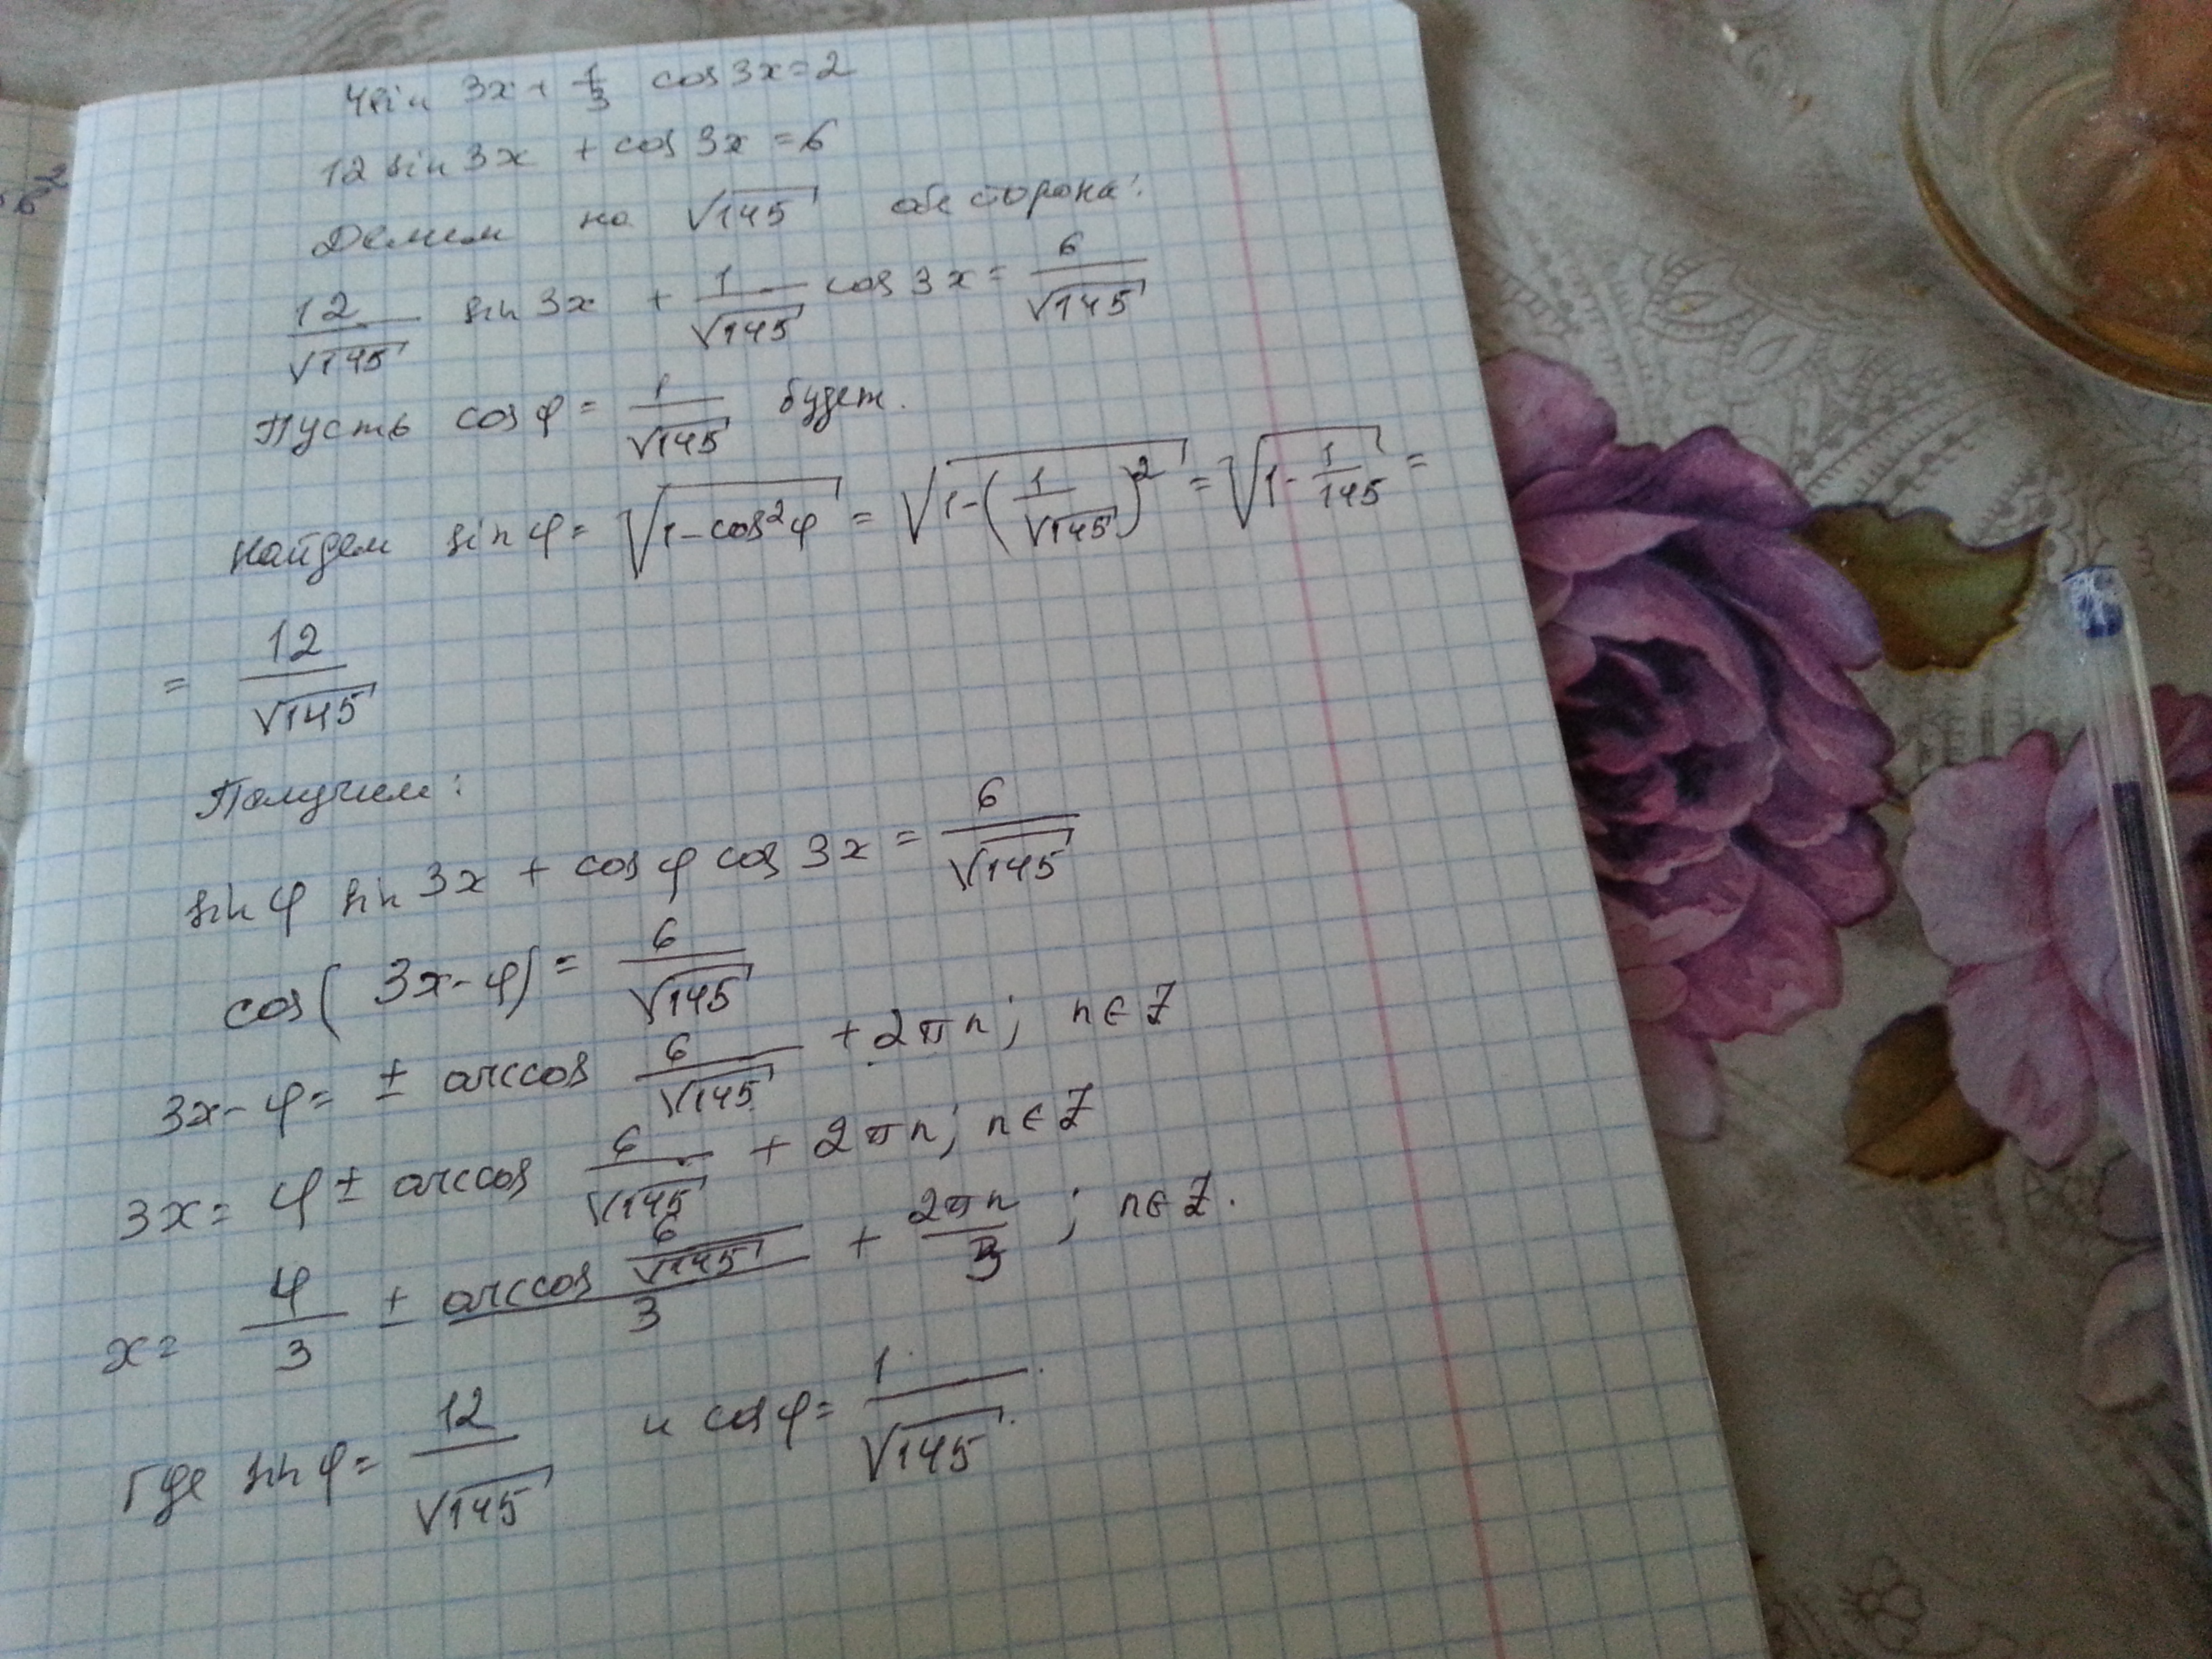 4sin 3x + 1/3 cos 3x = 2
12 sin 3x + cos 3x = 6
Делим на √145 обе сторона:
12/√145 sin 3x + 1/√145 cos 3x = 6/√145
Пусть cos φ = 1/√145 будет.
Найдем sin φ = √(1-cos²φ) = √(1-(1/√145)²) = √(1-1/145) =
= 12/√145
Получим:
sin φ sin 3x + cos φ cos 3x = 6/√145
cos( 3x-φ) = 6/√145
3x-φ = ± arccos 6/√145 + 2πn; n∈Z
3x = φ ± arccos 6/√145 + 2πn; n∈Z
x = φ/3 ± (arccos 6/√145)/3 + 2πn/3; n∈Z.
Где sin φ = 12/√145 и cos φ = 1/√145.